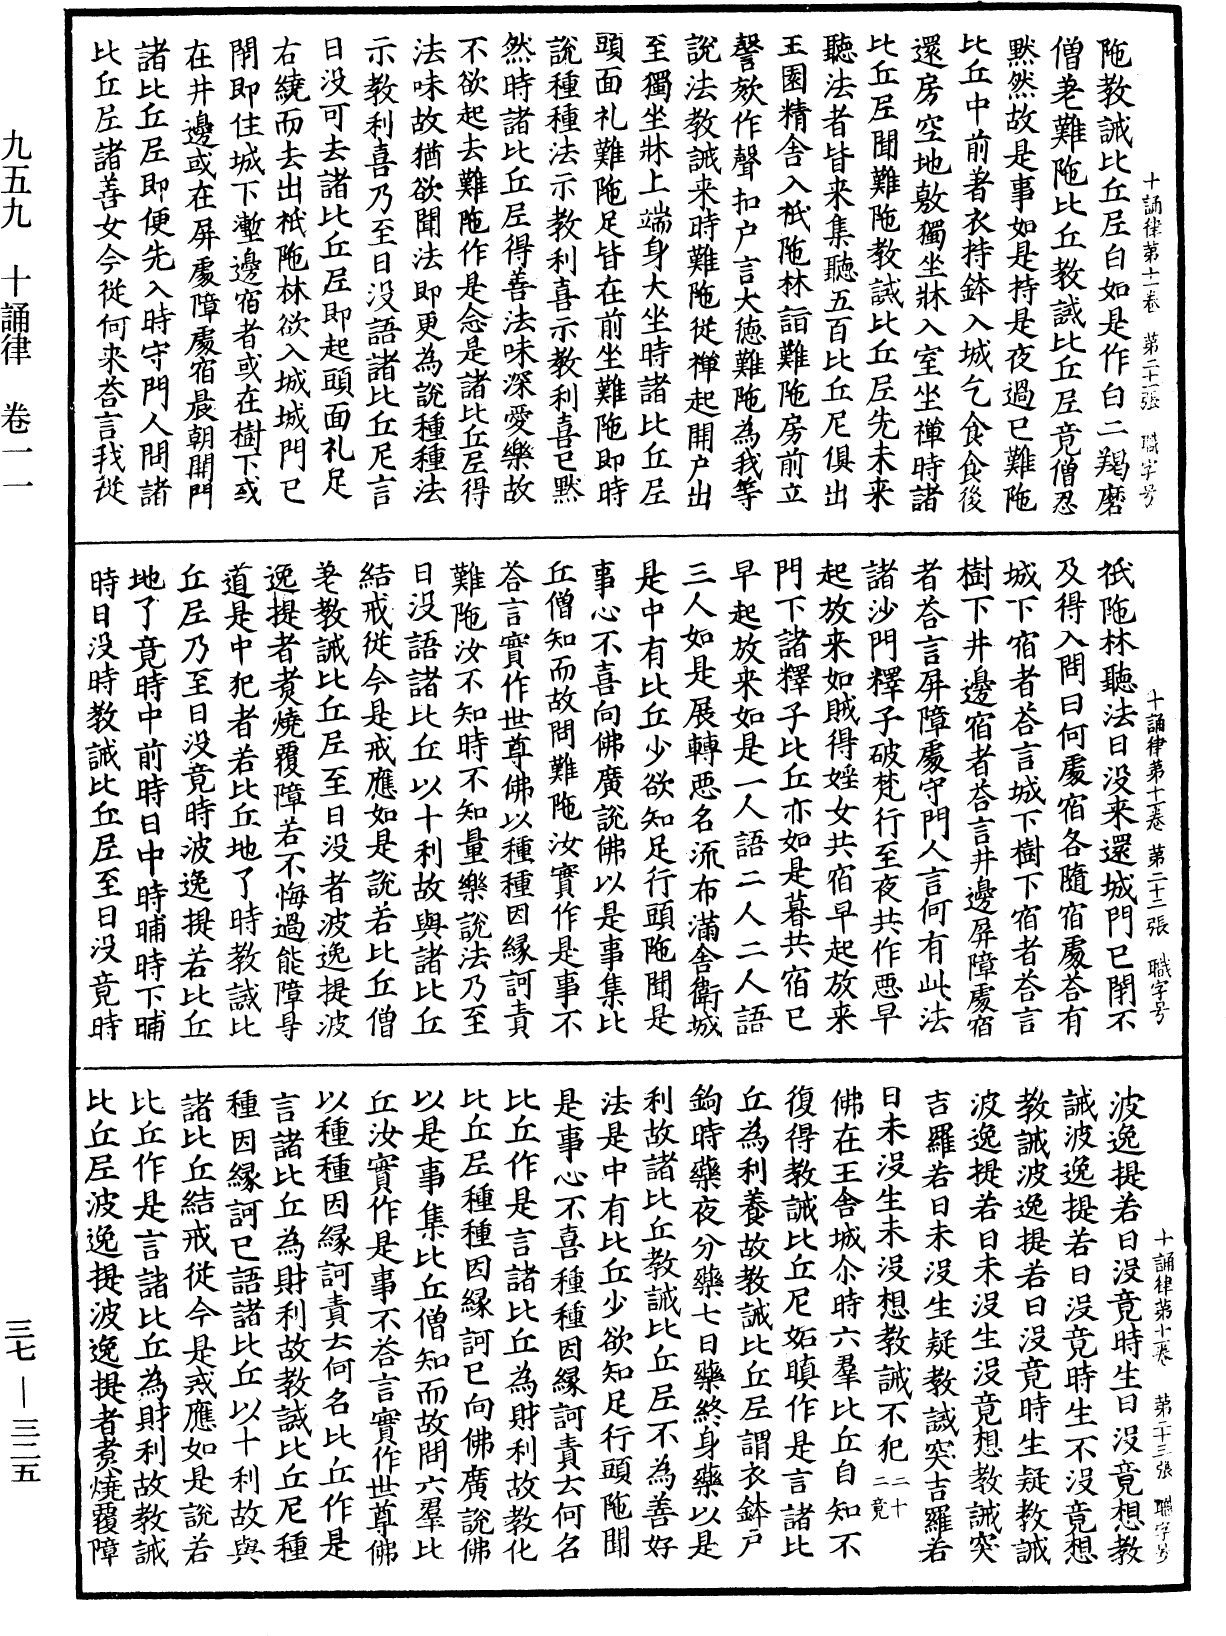 十誦律第十一卷　第二十一張　職字号
陁教誡比丘𡰱白如是作白二羯磨
僧差難陁比丘教誡比丘𡰱竟僧忍
黙然故是事如是持是夜過已難陁
比丘中前著衣持鉢入城乞食食後
還房空地敷獨坐牀入室坐禅時諸
比丘𡰱聞難陁教誡比丘𡰱先未来
聽法者皆来集聽五百比丘尼俱出
王園精舍入祇陁林詣難陁房前立
謦欬作聲扣户言大德難陁為我等
說法教誡来時難陁從禅起開户出
至獨坐牀上端身大坐時諸比丘𡰱
頭面礼難陁足皆在前坐難陁即時
說種種法示教利喜示教利喜已黙
然時諸比丘𡰱得善法味深愛樂故
不欲起去難陁作是念是諸比丘𡰱得
法味故猶欲聞法即更為說種種法
示教利喜乃至日没語諸比丘尼言
日没可去諸比丘𡰱即起頭面礼足
右繞而去出祇陁林欲入城城門已
閇即住城下壍邊宿者或在樹下或
在井邊或在屏處障處宿晨朝開門
諸比丘𡰱即便先入時守門人問諸
比丘𡰱諸善女今從何来荅言我從
十誦律第十一卷　第二十二張　職字号
祇陁林聽法日没来還城門已閇不
及得入問曰何處宿各隨宿處荅有
城下宿者荅言城下樹下宿者荅言
樹下井邊宿者荅言井邊屏障處宿
者荅言屏障處守門人言何有此法
諸沙門釋子破梵行至夜共作惡早
起放来如賊得婬女共宿早起放来
門下諸釋子比丘亦如是暮共宿已
早起放来如是一人語二人二人語
三人如是展轉惡名流布滿舍衛城
是中有比丘少欲知足行頭陁聞是
事心不喜向佛廣說佛以是事集比
丘僧知而故問難陁汝實作是事不
荅言實作世尊佛以種種因緣訶責
難陁汝不知時不知量樂說法乃至
日没語諸比丘以十利故與諸比丘
結戒從今是戒應如是說若比丘僧
差教誡比丘𡰱至日没者波逸提波
逸提者煑燒覆障若不悔過能障㝵
道是中犯者若比丘地了時教誡比
丘𡰱乃至日没竟時波逸提若比丘
地了竟時中前時日中時晡時下晡
時日没時教誡比丘𡰱至日没竟時
十誦律第十一卷　第二十三張　職字号
波逸提若日没竟時生日没竟想教
誡波逸提若日没竟時生不没竟想
教誡波逸提若日没竟時生疑教誡
波逸提若日未没生没竟想教誡突
吉羅若日未没生疑教誡突吉羅若
日未没生未没想教誡不犯二十二竟
佛在王舍城尒時六羣比丘自知不
復得教誡比丘尼妬瞋作是言諸比
丘為利養故教誡比丘𡰱謂衣鉢户
鉤時藥夜分藥七日藥終身藥以是
利故諸比丘教誡比丘𡰱不為善好
法是中有比丘少欲知足行頭陁聞
是事心不喜種種因緣訶責云何名
比丘作是言諸比丘為財利故教化
比丘𡰱種種因緣訶已向佛廣說佛
以是事集比丘僧知而故問六羣比
丘汝實作是事不荅言實作世尊佛
以種種因緣訶責云何名比丘作是
言諸比丘為財利故教誡比丘尼種
種因緣訶已語諸比丘以十利故與
諸比丘結戒從今是戒應如是說若
比丘作是言諸比丘為財利故教誡
比丘𡰱波逸提波逸提者煑燒覆障
九五九　十誦律　卷一一
三七—三二五